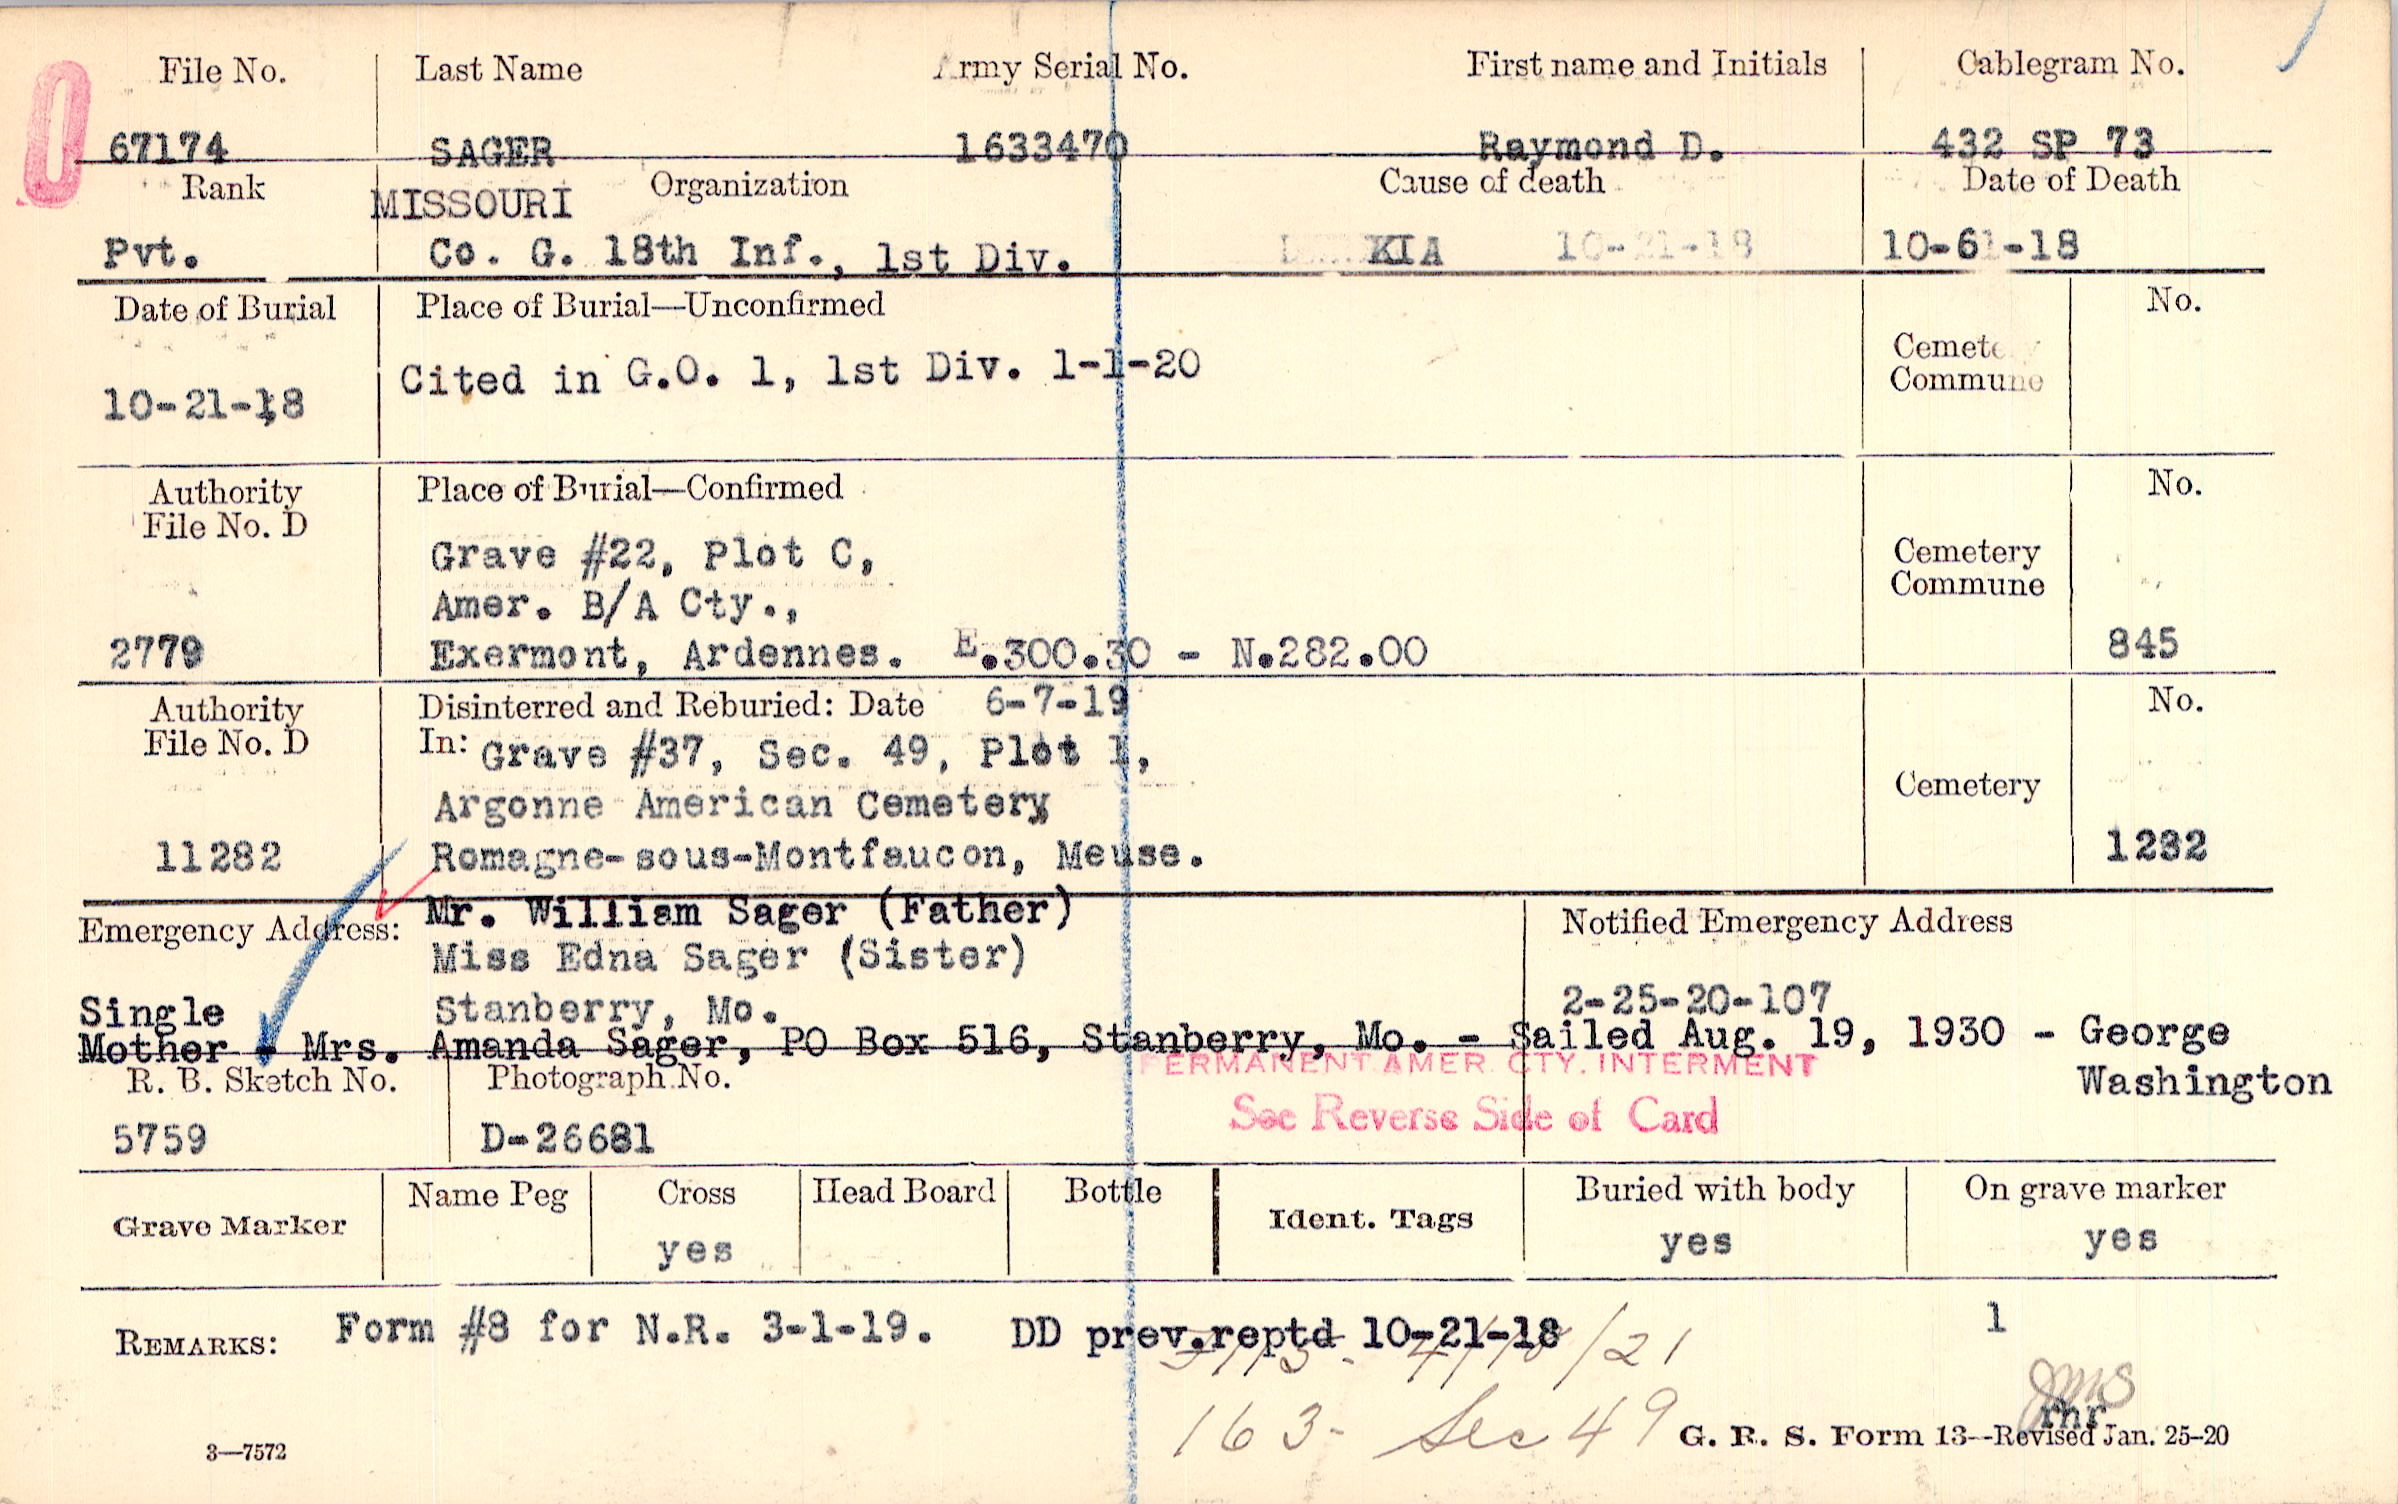 File No. Last Name Army Serial No. First name and Initials Cablegram No.
67174 SAGER 1633470 Raymond D. 432 SP 73
Rank MISSOURI Organization Cause of death Date of Death
Pvt. Co. G. 18th Inf., 1st Div. KIA 10-21-18 10-61-18
Date of Burial Place of Burial—Unconfirmed Cemetery Commune No.
10-21-18 Cited in G.O. 1, 1st Div. 1-1-20
Authority File No. D Place of Burial—Confirmed Cemetery Commune No.
Grave #22, Plot C,
Amer. B/A Cty.,
2779 Exermont, Ardennes. E.300.30 - N.282.00 845
Authority File No. D Disinterred and Reburied: Date 6-7-19 Cemetery No.
In: Grave #37, Sec. 49, Plot 1,
Argonne American Cemetery
11282 Romagne-sous-Montfaucon, Meuse. 1232
Emergency Address: Mr. William Sager (Father) Notified Emergency Address
Miss Edna Sager (Sister)
Single Stanberry, Mo. 2-25-20-107
Mother - Mrs. Amanda Sager, PO Box 516, Stanberry, Mo. - Sailed Aug. 19, 1930 - George
Washington
PERMANENT AMER. CTY. INTERMENT
R. B. Sketch No. Photograph No.
See Reverse Side of Card
5759 D-26681
Grave Marker Name Peg Cross Head Board Bottle Ident. Tags Buried with body On grave marker
yes yes yes
REMARKS: Form #8 for N.R. 3-1-19. DD prev.reptd 10-21-18 1
/21
163- Sec 49
JMS
rhr
3—7572 G. R. S. Form 13--Revised Jan. 25-20